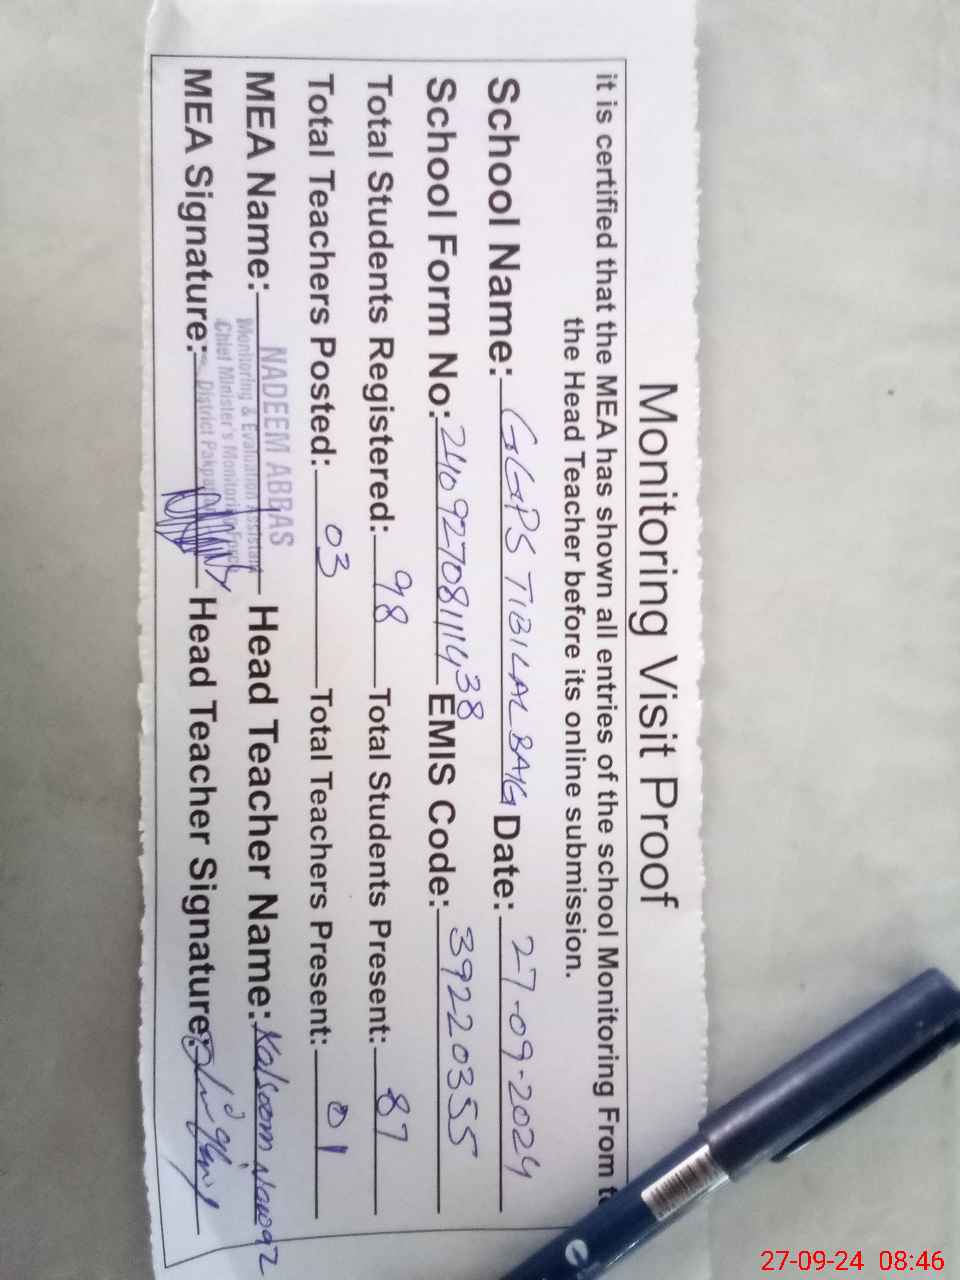 Monitoring Visit Proof
it is certified that the MEA has shown all entries of the school Monitoring From t
the Head Teacher before its online submission.
School Name: GGPS TIBI LAL BAIG Date: 27-09-2024
School Form No: 24092708111438 EMIS Code: 39220355
Total Students Registered: 98 Total Students Present: 87
Total Teachers Posted: 03 Total Teachers Present: 01
MEA Name: NADEEM ABBAS Head Teacher Name: Kalsoom Nawaz
Monitoring & Evaluation Assistant
Chief Minister's Monitoring Force
District Pakpattan
MEA Signature: Head Teacher Signature:
27-09-24 08:46